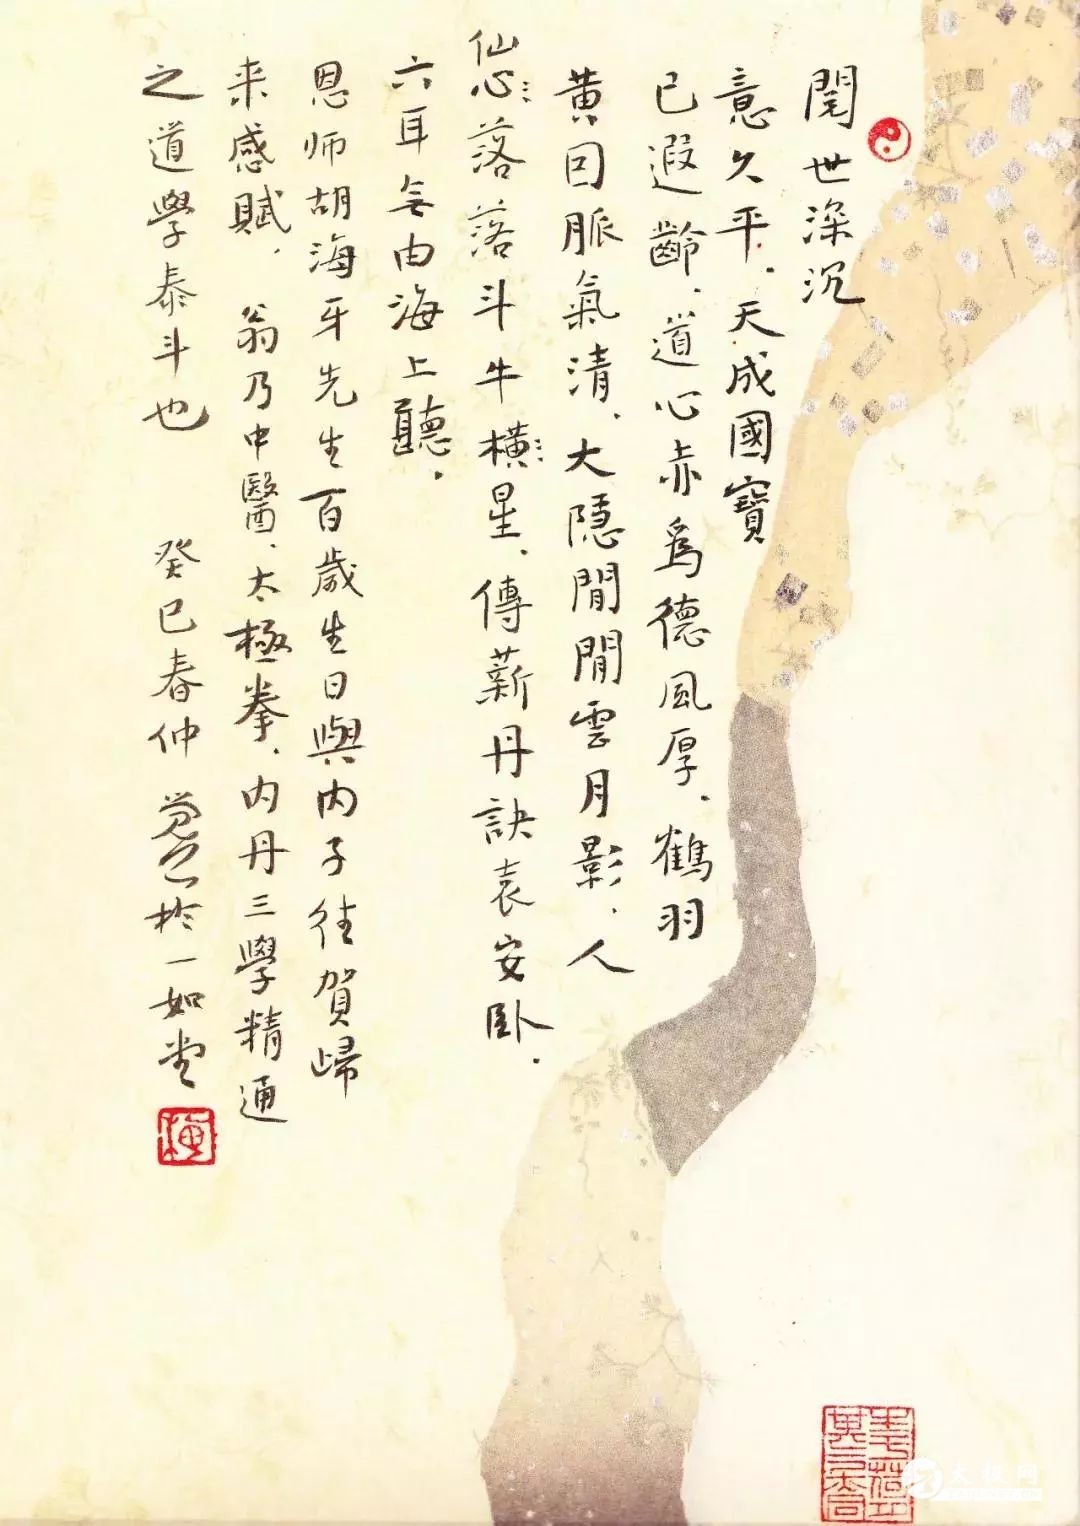 閱世深沉
意久平、天成國寶
已遐齡、道心赤爲德風厚、鶴羽
黄因脈氣清、大隱閒閒雲月影、人
仙心落落斗牛橫星、傳薪丹訣袁安卧.
六耳无由海上聽.
恩师胡海牙先生百歲生日與内子往賀歸
来感賦、翁乃中醫、太極拳、内丹三學精通
之道學泰斗也 癸巳春仲 於一如堂
太极网